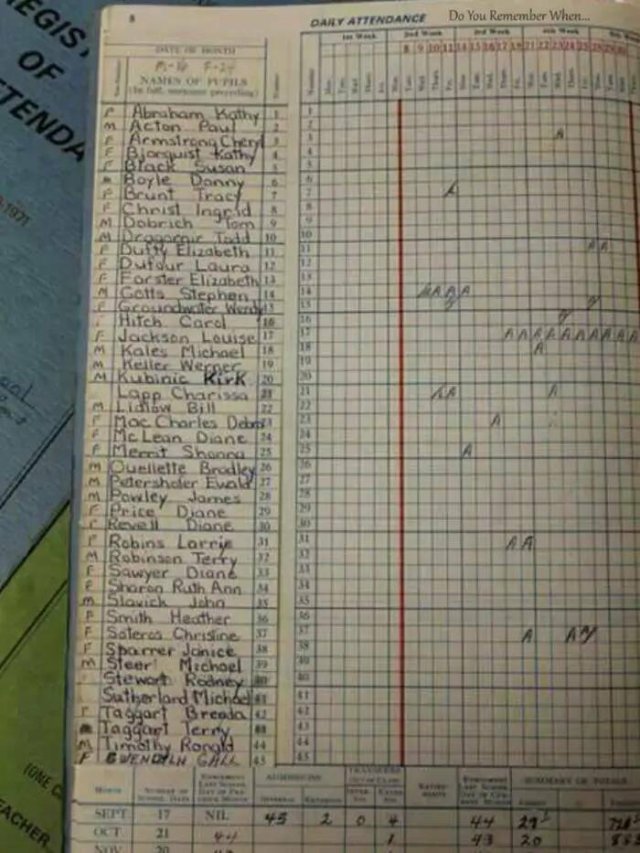 REGIS
OF
TTENDA
1971
8
DAILY ATTENDANCE
Do You Remember When...
DATE OF MONTH
1st Week 2nd Week 3rd Week 4th Week
8 9 10 11 14 15 16 17 18 21 22 23 24 25 28 29 30
NAMES OF PUPILS
(In full, surname preceding)
F Abraham Kathy 1
M Acton Paul 2
F Armstrong Cheryl 3 A
F Bjorquist Kathy 4
F Black Susan 5
Boyle Danny 6
F Brunt Tracy 7
F Christ Ingrid 8
M Dobrich Tom 9
M Dragomir Todd 10
F Duffy Elizabeth 11 A A
F Dufour Laura 12
F Forster Elizabeth 13
M Gotts Stephen 14 A A A
F Groundwater Wendy 15
Hitch Carol 16
F Jackson Louise 17 A A A A A A A A A
M Kales Michael 18 A
M Keller Werner 19
M Kubinic Kirk 20
Lapp Charissa 21 A A A
M Lidlow Bill 22
F Mac Charles Debra 23 A
F McLean Diane 24
F Merrit Shonna 25 A
M Ouellette Bradley 26
M Petershofer Ewald 27
M Powley James 28
F Price Diane 29
F Revell Diane 30
F Robins Lorrie 31 A A
M Robinson Terry 32
F Sawyer Diane 33
F Sharon Ruth Ann 34
M Slavick John 35
F Smith Heather 36
F Soteros Christine 37 A A
F Sparrer Janice 38
M Steer Michael 39
Stewart Rodney 40
Sutherland Michael 41
F Taggart Brenda 42
Taggart Terry 43
M Timothy Ronald 44
F GWENDLYN GALL 45
MONTH
SUMMARY OF TOTALS
SEPT 17 NIL 45 2 0 4 44
OCT 21 44 1 43 20
NOV 20
EACHER